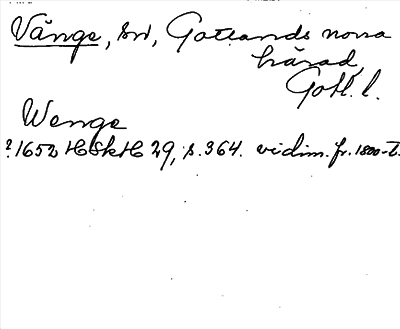 Vänge, sn, Gotlands norra
härad,
Gotl. l.
Wenge
? 1652 HSkH 29, s. 364. vidim. fr. 1800-t.